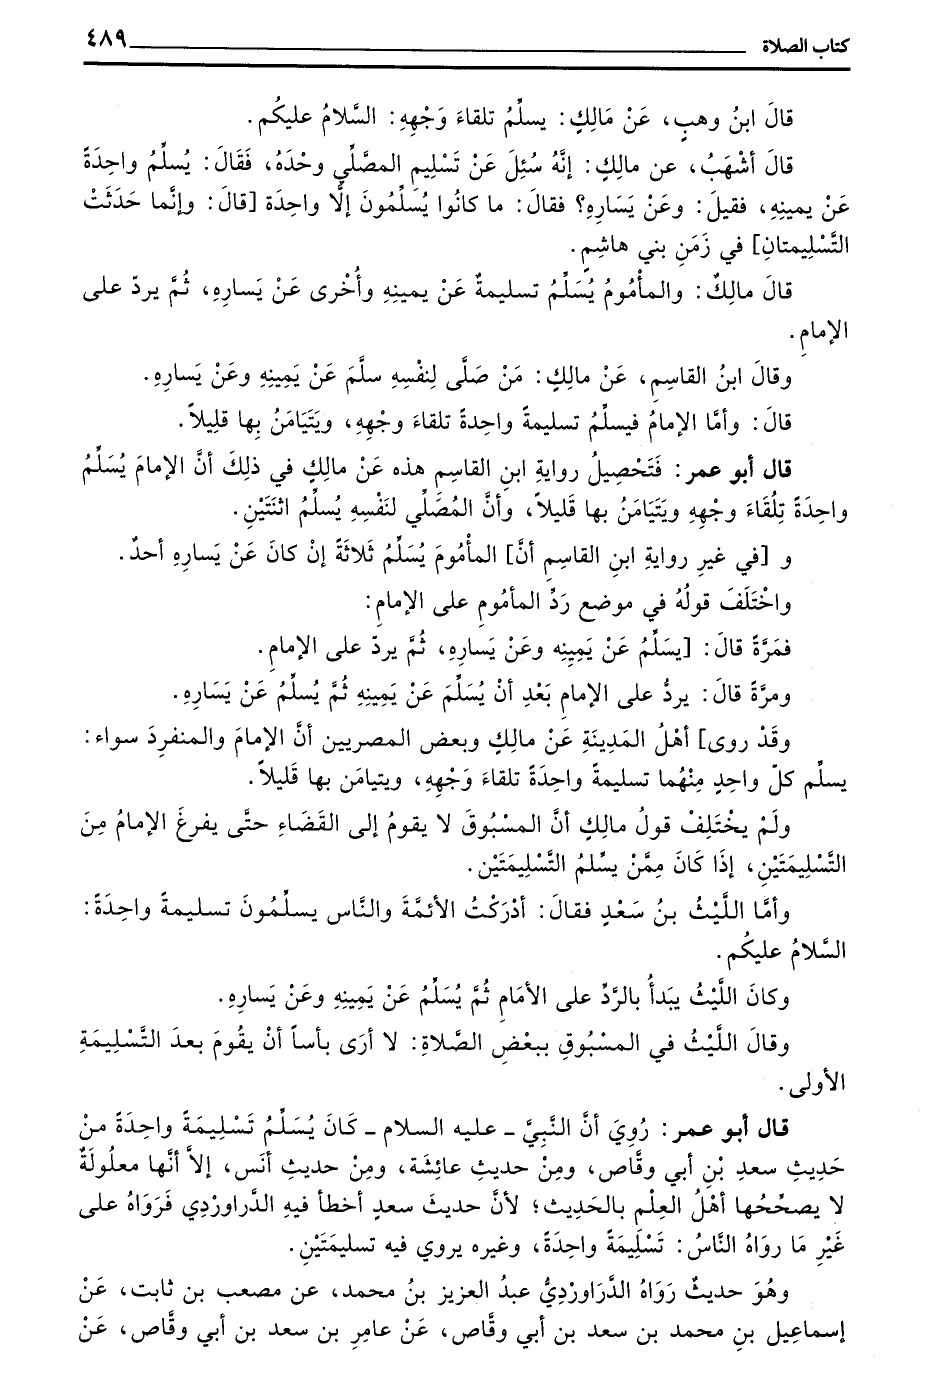 كتاب الصلاة ٤٨٩
قالَ ابنُ وهبٍ، عَنْ مَالِكٍ: يسلِّمُ تلقاءَ وَجْهِهِ: السَّلامُ عليكُم.
قالَ أشْهَبُ، عن مالكٍ: إنَّهُ سُئِلَ عَنْ تَسْلِيمِ المصَلِّي وحْدَهُ، فَقَالَ: يُسلِّمُ واحِدَةً
عَنْ يمينِهِ، فقيلَ: وعَنْ يَسَارِهِ؟ فقالَ: ما كانُوا يُسَلِّمُونَ إلَّا واحِدَة [قالَ: وإنَّما حَدَثَتْ
التَّسْلِيمتانِ] في زَمَنِ بني هاشِمٍ.
قالَ مالِكٌ: والمأمُومُ يُسَلِّمُ تسليمةً عَنْ يمينِهِ وأُخْرى عَنْ يَسارِهِ، ثُمَّ يردّ على
الإمامِ.
وقالَ ابنُ القاسِمِ، عَنْ مالِكٍ: مَنْ صَلَّى لِنفْسِهِ سلَّمَ عَنْ يَمِينِهِ وعَنْ يَسارِهِ.
قالَ: وأمَّا الإمامُ فيسلِّمُ تسليمةً واحِدةً تلقاءَ وجْهِهِ، ويَتَيَامَنُ بِها قلِيلاً.
قال أبو عمر: فَتَحْصِيلُ روايةِ ابنِ القاسِمِ هذه عَنْ مالكٍ في ذلِكَ أنَّ الإمامَ يُسَلِّمُ
واحِدَةً تِلْقَاءَ وجْهِهِ ويَتَيَامَنُ بها قَليلاً، وأنَّ المُصَلِّي لنَفْسِهِ يُسلِّمُ اثنَتَيْنِ.
و [في غيرِ روايةِ ابنِ القاسِمِ أنَّ] المأمُومَ يُسَلِّمُ ثَلاثَةً إنْ كانَ عَنْ يَسارِهِ أحدٌ.
واخْتَلَفَ قولُهُ في موضعِ رَدِّ المأمُومِ على الإمامِ:
فمَرَّةً قالَ: [يسَلِّمُ عَنْ يَمِينِه وعَنْ يَسارِهِ، ثُمَّ يردّ على الإمامِ.
ومرَّةً قالَ: يردُّ على الإمامِ بَعْدِ أنْ يُسَلِّمَ عَنْ يَمِينِهِ ثُمَّ يُسلِّمُ عَنْ يَسَارِهِ.
وقَدْ روى] أهْلُ المَدِينَةِ عَنْ مالكٍ وبعض المصريين أنَّ الإمامَ والمنفرِدَ سواء:
يسلِّم كلّ واحِدٍ مِنْهُما تسليمةً واحِدَةً تلقاءَ وَجْهِهِ، ويتيامَن بها قَليلاً.
ولَمْ يخْتَلِفْ قولُ مالكٍ أنَّ المسْبُوقَ لا يقومُ إلى القَضَاءِ حتَّى يفرغَ الإمامُ مِنَ
التَّسْلِيمَتَيْنِ، إذَا كَانَ مِمَّنْ يسِّلمُ التَّسْلِيمَتَيْنِ.
وأمَّا اللَّيْثُ بنُ سَعْدٍ فقالَ: أدْرَكْتُ الأئمَّةَ والنَّاس يسلِّمُونَ تسليمةً واحِدَةً:
السَّلامُ عليكُم.
وكانَ اللَّيْثُ يبَدأُ بالرَّدِّ على الأمَامِ ثُمَّ يُسَلِّمُ عَنْ يَمِينِهِ وعَنْ يَسارِهِ.
وقالَ اللَّيْثُ في المسْبُوقِ ببعْضِ الصَّلاةِ: لا أرَى بأساً أنْ يقُومَ بعدَ التَّسْلِيمَةِ
الأولى.
قال أبو عمر: رُوِيَ أنَّ النَّبِيَّ ـ عليه السلام ـ كَانَ يُسَلِّمُ تَسْلِيمَةً واحِدَةً منْ
حَدِيثِ سعدِ بْنِ أبي وقَّاص، ومِنْ حديثِ عائِشَة، ومِنْ حديثِ أنَس، إلاَّ أنَّها معلُولَةٌ
لا يصحِّحُها أهْلُ العِلْمِ بالحَدِيث؛ لأنَّ حديثَ سعدٍ أخطأ فيهِ الدَّراورْدِي فَرَوَاهُ على
غَيْرِ مَا رواهُ النَّاسُ: تَسْلَيِمَةً واحِدَةً، وغيره يروي فيه تسليمَتَيْنِ.
وهُوَ حديثٌ رَوَاهُ الدَّرَاورْدِيُّ عبدُ العزيز بنُ محمد، عن مصعب بن ثابت، عَنْ
إسماعِيل بنِ محمد بن سعد بن أبي وقَّاص، عَنْ عامِرِ بن سعد بن أبي وقَّاص، عَنْ